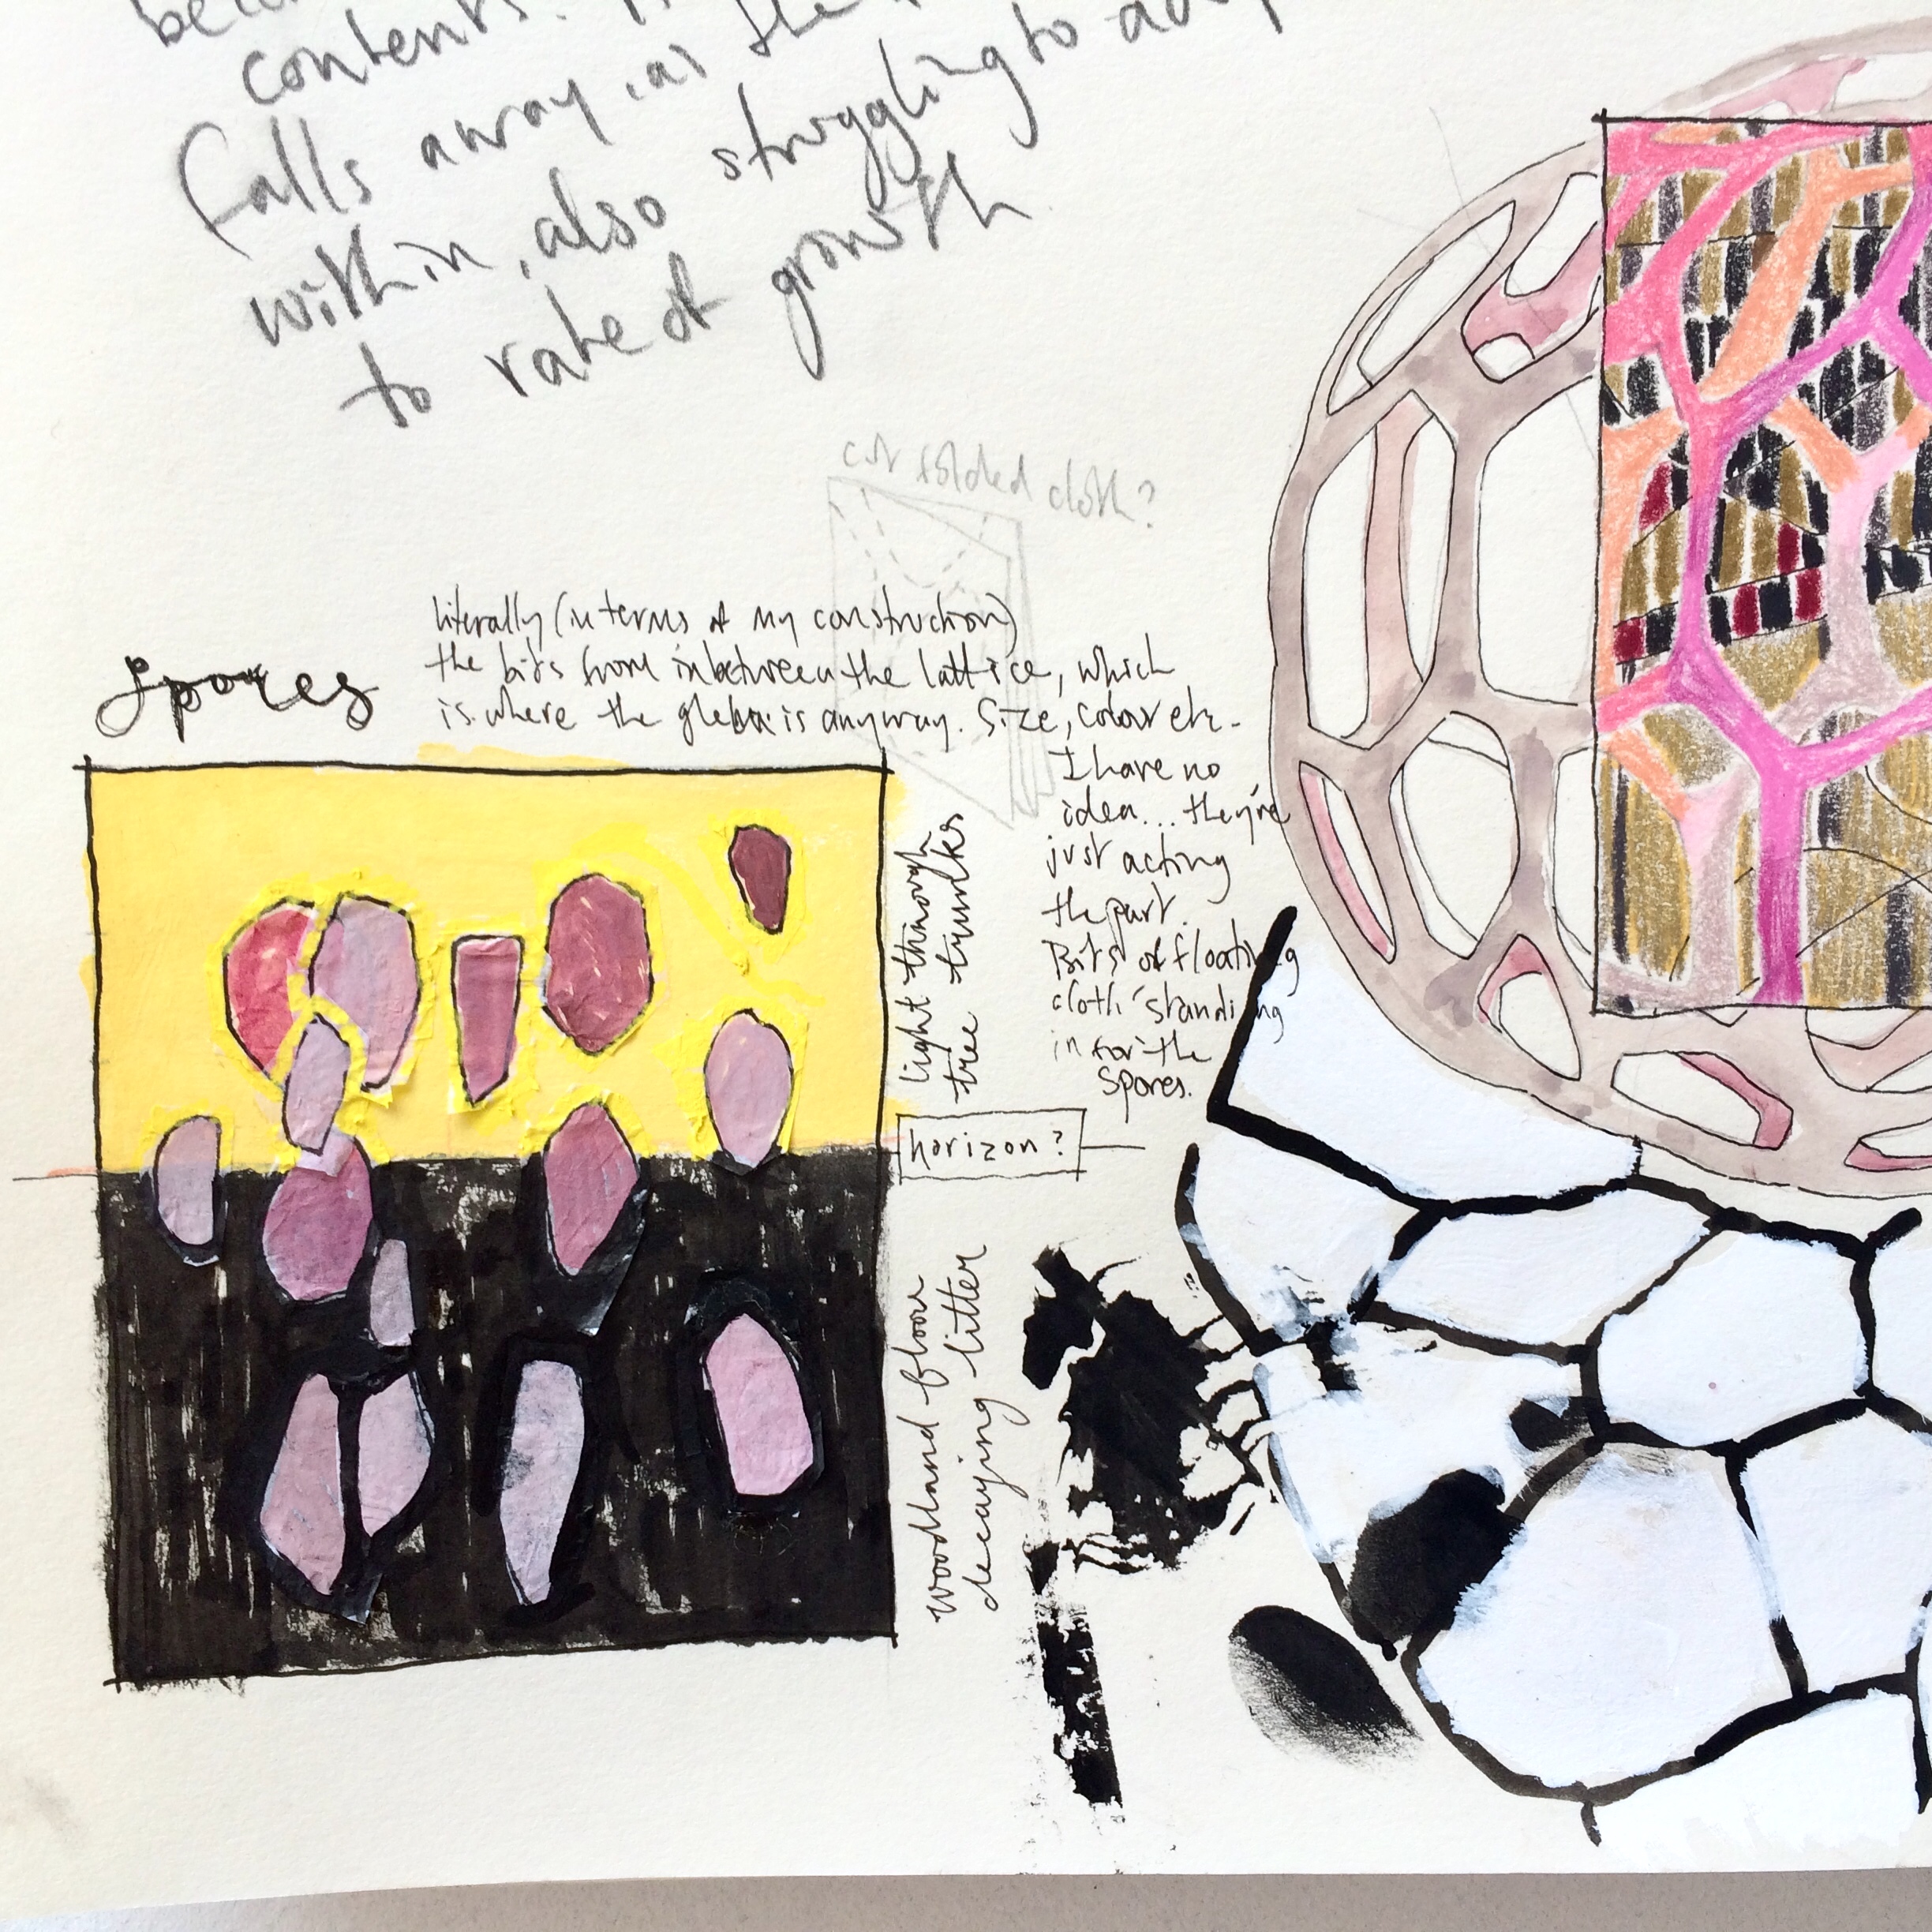 contents.
falls away as the
within, also struggling to
to rate of growth
cut folded cloth?
Spores
literally (in terms of my construction)
the bits from inbetween the lattice, which
is where the gleba is anyway. Size, colour etc -
I have no
idea... they're
just acting
the part.
Bits of floating
cloth 'standing
in for' the
spores.
light through
tree trunks
horizon?
woodland floor
decaying litter